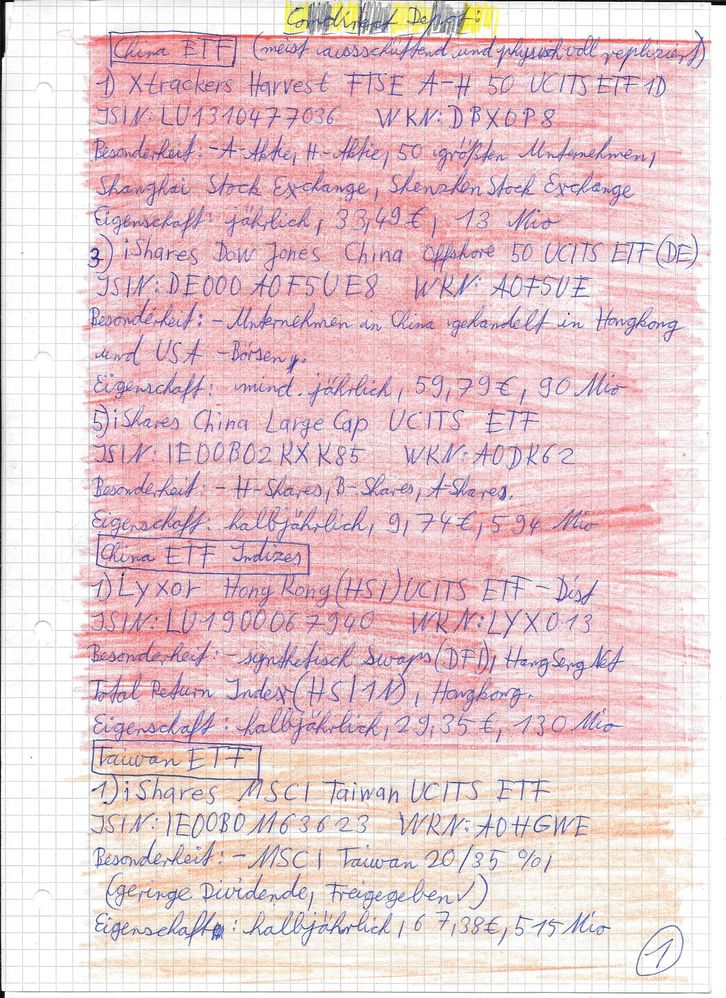 Comdirect Depot:
China ETF (meist aussschüttend und physisch voll repliziert)
1) Xtrackers Harvest FTSE A-H 50 UCITS ETF 1D
ISIN: LU1310477036 WKN: DBX0P8
Besonderheit: - A-Aktie, H-Aktie, 50 größten Unternehmen,
Shanghai Stock Exchange, Shenzhen Stock Exchange
Eigenschaft: jährlich, 33,49€, 13 Mio
3.) iShares Dow Jones China Offshore 50 UCITS ETF (DE)
ISIN: DE000 A0F5UE8 WKN: A0F5UE
Besonderheit: - Unternehmen in China gehandelt in Hongkong
und USA - Börsen,.
Eigenschaft: mind. jährlich, 59,79€, 90 Mio
5) iShares China Large Cap UCITS ETF
ISIN: IE00B02KXK85 WKN: A0DK62
Besonderheit: - H-Shares, B-Shares, A-Shares.
Eigenschaft: halbjährlich, 9,74€, 594 Mio
China ETF Indizes
1) Lyxor Hong Kong (HSI) UCITS ETF - Dist
ISIN: LU1900067940 WKN: LYX013
Besonderheit: - synthetisch Swaps (DFI), HangSeng Net
Total Return Index (HSI1N), Hongkong.
Eigenschaft: halbjährlich, 29,35€, 130 Mio
Taiwan ETF
1) iShares MSCI Taiwan UCITS ETF
ISIN: IE00B0M63623 WKN: A0HGWE
Besonderheit: - MSCI Taiwan 20/35 %,
(geringe Dividende, Freigegeben ✓)
Eigenschaft: halbjährlich, 67,38€, 515 Mio
1